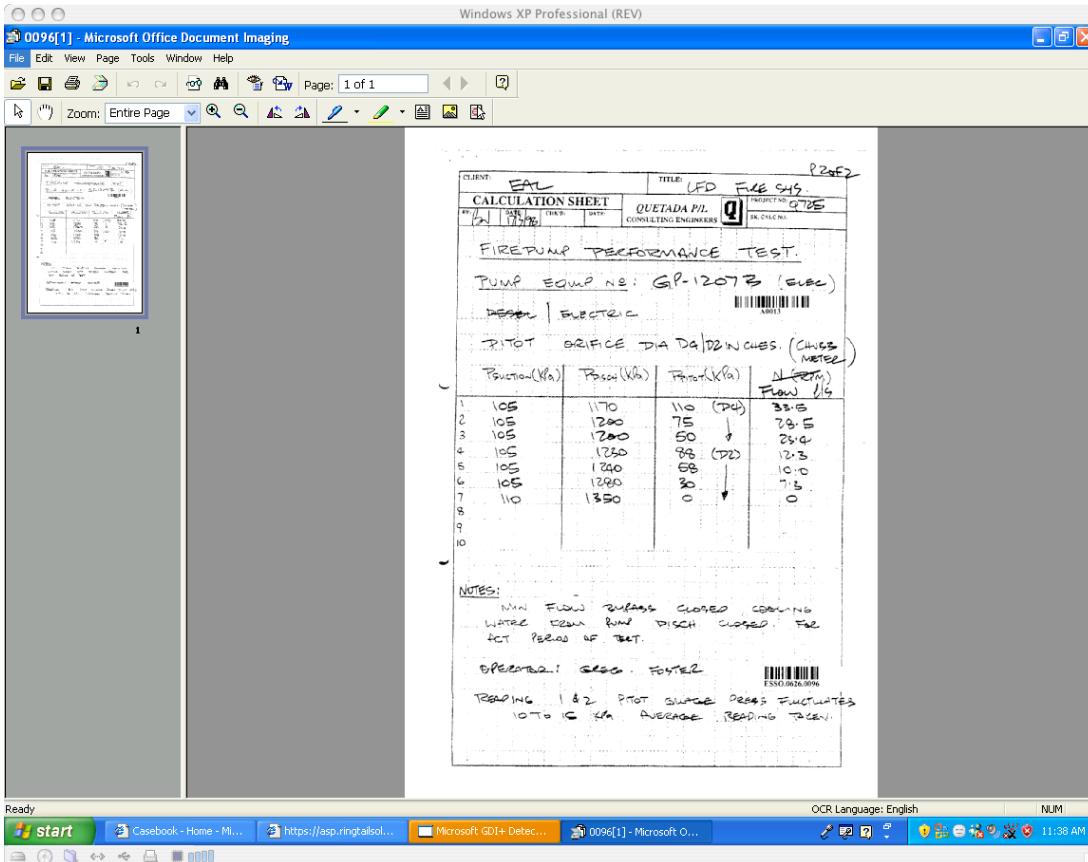 Windows XP Professional (REV)
0096[1] - Microsoft Office Document Imaging
File Edit View Page Tools Window Help
Page: 1 of 1
Zoom: Entire Page
1
P2of2
CLIENT: EAL TITLE: LFD FIRE SYS.
CALCULATION SHEET QUETADA P/L CONSULTING ENGINEERS q PROJECT NO 9725
BY: DATE 17/3/98 CHK'D: DATE: SK. CALC NO.
FIREPUMP PERFORMANCE TEST.
PUMP EQUIP NO: GP-1207B (ELEC)
A0013
DIESEL | ELECTRIC
PITOT ORIFICE DIA D4/D2 INCHES. (CHUBB METER)
PSUCTION (KPa) PDISCH (KPa) PPITOT (KPa) N (RPM)
FLOW L/S
1 105 1170 110 (D4) 33.5
2 105 1200 75 28.5
3 105 1200 50 23.4
4 105 1230 88 (D2) 12.3
5 105 1240 58 10.0
6 105 1280 30 7.3
7 110 1350 0 0
8
9
10
NOTES:
MIN FLOW BYPASS CLOSED COOLING
WATER FROM PUMP DISCH CLOSED. FOR
ACT PERIOD OF TEST.
OPERATOR: GREG. FOSTER
ESSO.0626.0096
READING 1 & 2 PITOT GUAGE PRESS FLUCTUATES
10 TO 15 KPa AVERAGE READING TAKEN.
Ready OCR Language: English NUM
start Casebook - Home - Mi... https://asp.ringtailsol... Microsoft GDI+ Detec... 0096[1] - Microsoft O... 11:38 AM